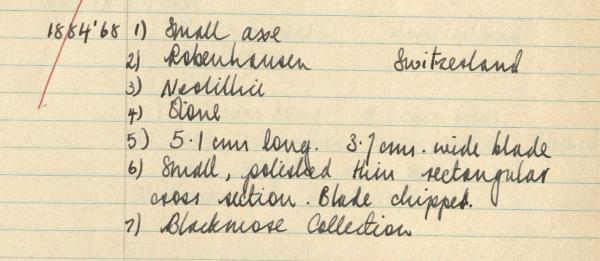 1884'68 1) Small axe
2) Robenhausen Switzerland
3) Neolithic
4) Stone
5) 5.1 cms long. 3.7 cms. wide blade
6) Small, polished thin rectangular
cross section. Blade chipped.
7) Blackmore Collection